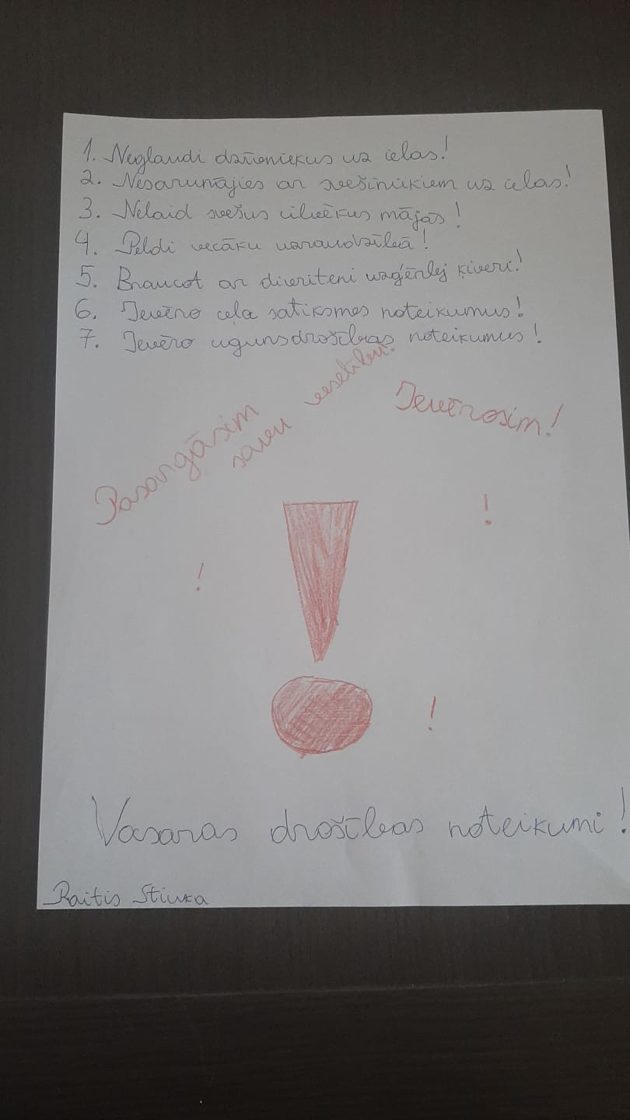 1. Neglaudi dzīvniekus uz ielas!
2. Nesarunājies ar svešiniekiem uz ielas!
3. Nelaid svešus cilvēkus mājās!
4. Peldi vecāku uzraudzībā!
5. Braucot ar divriteni uzģērbj ķiveri!
6. Ievēro ceļa satiksmes noteikumus!
7. Ievēro ugunsdrošības noteikumus!
Pasargāsim
savu veselību!
Ievērosim!
!
!
!
!
Vasaras drošības noteikumi!
Raitis